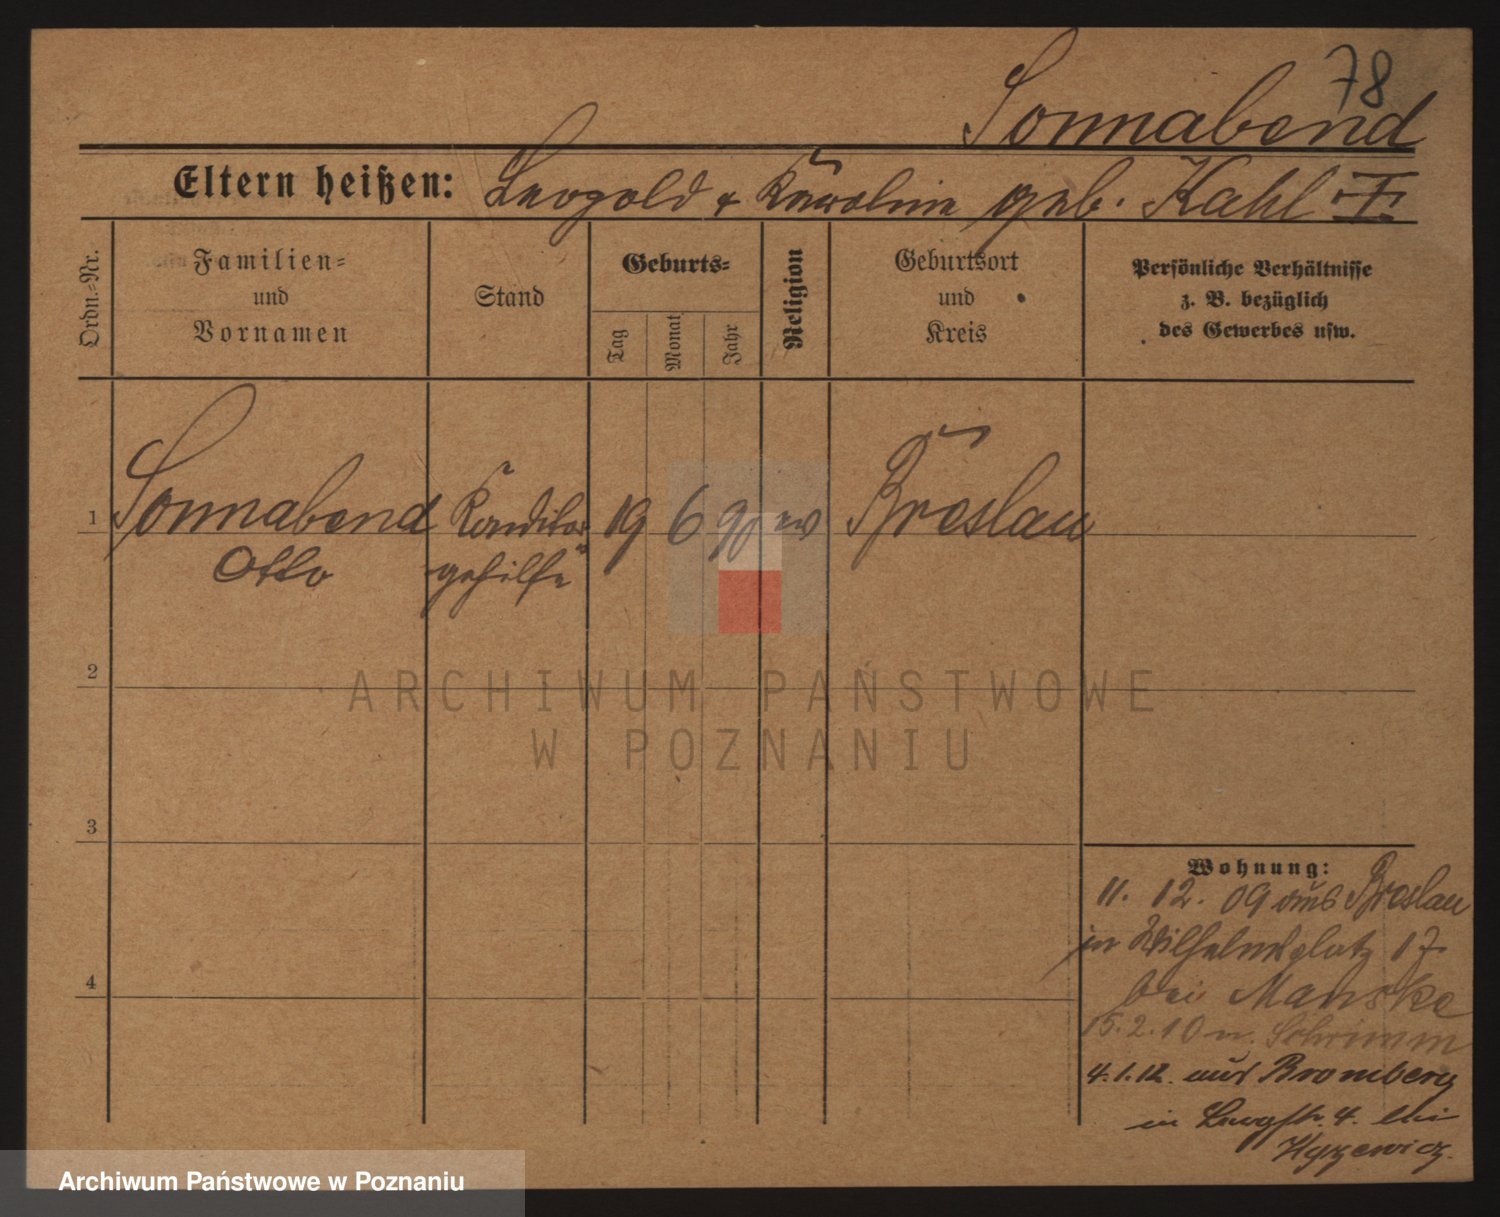 78
Sonnabend
Eltern heißen: Leopold & Karoline geb. Kahl I.
Ordn.-Nr.
Familien-
und
Vornamen
Stand
Geburts-
Tag
Monat
Jahr
Religion
Geburtsort
und
Kreis
Persönliche Verhältnisse
z. B. bezüglich
des Gewerbes usw.
1 Sonnabend Konditor 19 6 90 ev Breslau
Otto gehilfe
2
3
4
Wohnung:
11. 12. 09 aus Breslau
in Wilhelmsplatz 17
bei Manske
15. 2. 10 n. Schrimm
4. 1. 12. aus Bromberg
in Langstr. 4. bei
ARCHIWUM PAŃSTWOWE
W POZNANIU
Archiwum Państwowe w Poznaniu